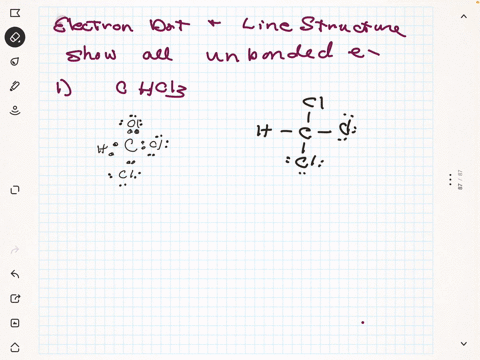 Electron Dot + Line Structure
Show all unbonded e-
1) CHCl3
Cl
H C Cl
Cl
Cl
H - C - Cl
Cl
87 / 87